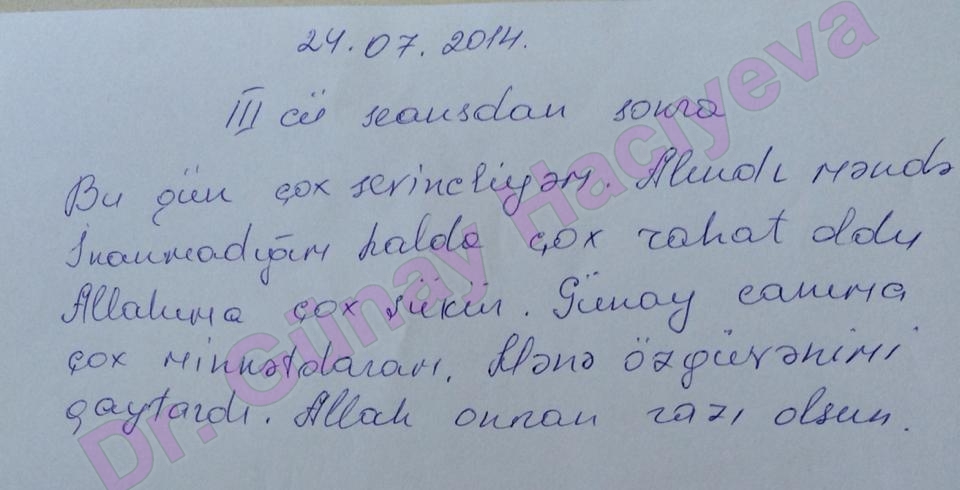 24.07.2014.
III cü seansdan sonra
Bu gün çox serincliyəm. Alındı məndə
İnanmadığım halda çox rahat oldu
Allahıma çox şükür. Günay canıma
çox minnətdaram. Mənə özgüvənimi
qaytardı. Allah onnan razı olsun.
Dr. Günay Haciyeva